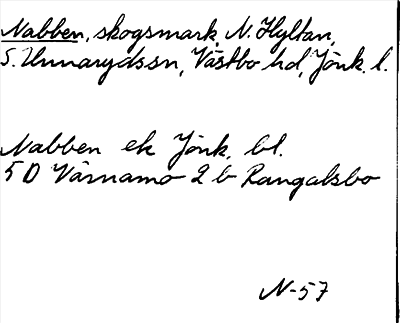 Nabben, skogsmark, N. Hyltan,
S. Unnarydssn, Västbo hd, Jönk. l.
Nabben ek Jönk. bl.
5 D Värnamo 2 b Rangalsbo
N-57